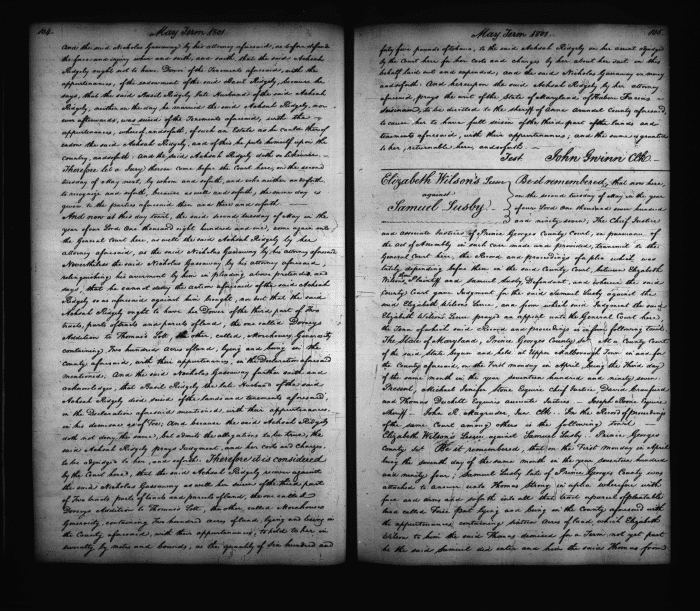 104. May Term 1801
And the said Nicholas Gassaway by his attorney aforesaid, as before defends
the force and injury when and saith, that the said Achsah
Ridgely ought not to have Dower of the Tenements aforesaid, with the
appurtenances, of the endowment of the said Basil Ridgely, because he
says, that the said Basil Ridgely late Husband of the said Achsah
Ridgely, neither on the day he married the said Achsah Ridgely, nor
ever afterwards, was seized of the Tenements aforesaid, with the
appurtenances, whereof and soforth, of such an Estate as he could thereof
endow the said Achsah Ridgely, and of this he puts himself upon the
country, and soforth. And the said Achsah Ridgely doth so likewise.
Therefore let a Jury thereon come before the Court here, on the second
Tuesday of May next, by whom and soforth, and who neither and soforth
to recognize and soforth, because as well and soforth, the same day is
given to the parties aforesaid then and there and soforth.
And now at this day to wit, the said second Tuesday of May in the
year of our Lord One thousand eight hundred and one, come again into
the General Court here, as well the said Achsah Ridgely by her
attorney aforesaid, as the said Nicholas Gassaway by his attorney aforesaid
Nevertheless the said Nicholas Gassaway, by his attorney aforesaid
relinquishing his averment by him in pleading above pretended,
says, that he cannot deny the action aforesaid of the said Achsah
Ridgely so as aforesaid against him brought, but that the said
Achsah Ridgely ought to have her Dower of the third part of Two
tracts, parts of tracts and parcels of land, the one called Dorseys
Addition to Thomas's Lott, the other, called, Generosity
containing Two hundred Acres of land, lying and being in the
County aforesaid, with their appurtenances, in the Declaration aforesaid
mentioned; And the said Nicholas Gassaway further saith and
acknowledges, that Basil Ridgely the late Husband of the said
Achsah Ridgely died seized of the lands and tenements aforesaid,
in the Declaration aforesaid mentioned, with their appurtenances.
in his demesne as of Fee; And because the said Achsah Ridgely
doth not deny the same, but admits the allegations to be true, the
said Achsah Ridgely prays Judgment, and her costs and Charges,
to be adjudged to her and soforth. Therefore it is considered
by the Court here, that the said Achsah Ridgely recover against
the said Nicholas Gassaway as well her seizin of the third part
of Two tracts parts of tracts and parcels of land, the one called
Dorseys Addition to Thomas's Lott, the other, called
Generosity, containing Two hundred Acres of land, lying and being in
the County aforesaid, with their appurtenances, to hold to her in
severalty by metes and bounds, as the quantity of Six hundred and
May Term 1801. 105.
forty five pounds of tobacco, to the said Achsah Ridgely on her assent adjudged
by the Court here for her costs and charges by her about her suit in this
behalf laid out and expended, and the said Nicholas Gassaway in mercy
and soforth. And hereupon the said Achsah Ridgely, by her attorney
aforesaid, prays the writ of the State of Maryland, of Habere Facias
Seisinam, to be directed to the sheriff of Anne Arundel County aforesaid,
to cause her to have full seizin of the third part of the lands and
tenements aforesaid, with their appurtenances, and the same is granted
to her, returnable here, and soforth.
Test John Gwinn Clk
Elizabeth Wilson's Lessee
against
Samuel Lusby.
Be it remembered, that now here,
on the second Tuesday of May in the year
of our Lord One thousand seven hundred
and ninety seven, The Chief Justice
and associate Justices of Prince Georges County Court, in pursuance of
the Act of Assembly in such case made and provided, transmit to the
General Court here, the Record and proceedings of a plea which was
lately depending before them in the said County Court between Elizabeth
Wilsons Lessee Plaintiff and Samuel Lusby, Defendant, and wherein the said
County Court gave Judgment for the said Samuel Lusby against the
said Elizabeth Wilsons Lessee, and from which said Judgment the said
Elizabeth Wilson's Lessee prayed an appeal unto the General Court here,
the Tenor of which said Record and proceedings is as follows, to wit.
The State of Maryland, Prince Georges County Sct. At a County Court
of the said State begun and held at Upper Marlborough Town in and for
the County aforesaid, on the First Monday in April being the Third day
of the same month in the year seventeen hundred and ninety seven.
Present, Michael Jenifer Stone Esquire Chief Justice, David Crawfurd
and Thomas Duckett Esquires associate Justices. Joseph Boone Esquire
Sheriff John R. Magruder Jun. Clk. In the Record of proceedings
of the same Court among others is the following to wit
Elizabeth Wilson's Lessee against Samuel Lusby. Prince Georges
County Sct. Be it remembered, that on the First Monday in April
being the seventh day of the same month in the year seventeen hundred
and ninety four; Samuel Lusby late of Prince Georges County was
attached to answer unto Thomas Strong in a plea wherefore with
force and arms and soforth into all that tract or parcel of plantable
land called lying and being in the County aforesaid with
the appurtenances, containing sixteen Acres of land which Elizabeth
Wilson to him the said Thomas demised for a Term not yet past
he the said Samuel did enter and him the said Thomas from